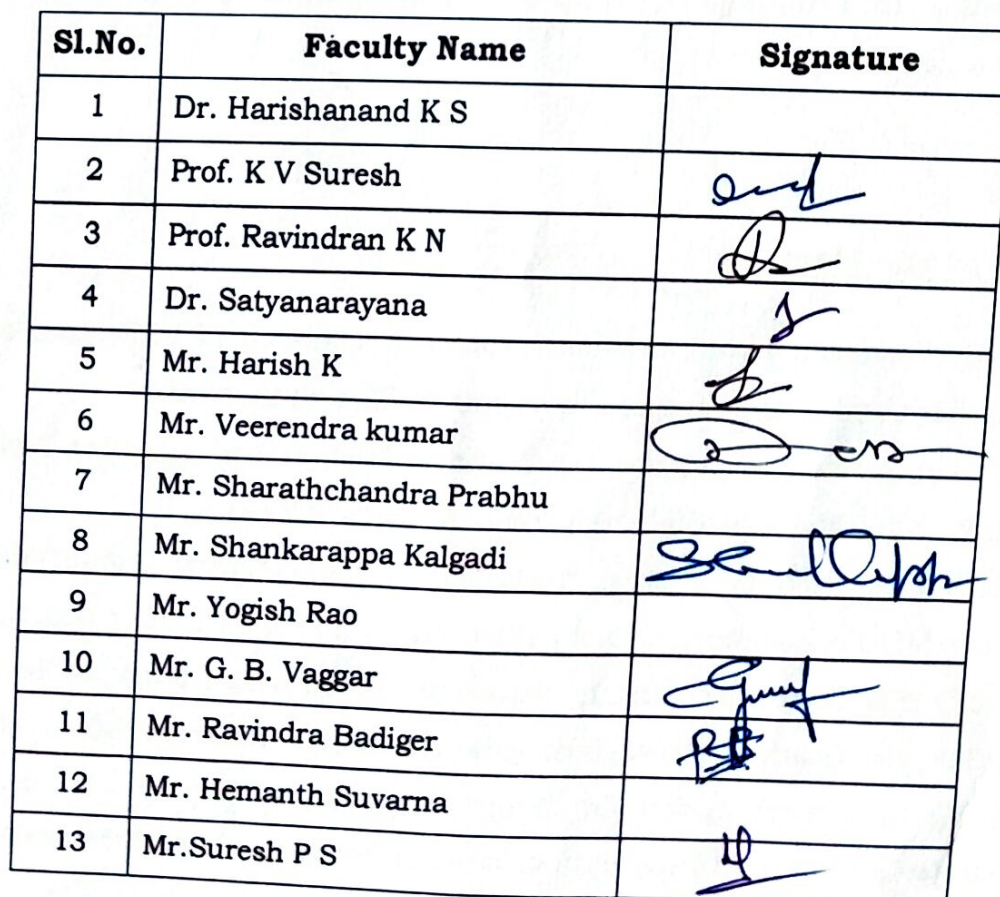 Sl.No. Faculty Name Signature
1 Dr. Harishanand K S
2 Prof. K V Suresh
3 Prof. Ravindran K N
4 Dr. Satyanarayana
5 Mr. Harish K
6 Mr. Veerendra kumar
7 Mr. Sharathchandra Prabhu
8 Mr. Shankarappa Kalgadi
9 Mr. Yogish Rao
10 Mr. G. B. Vaggar
11 Mr. Ravindra Badiger
12 Mr. Hemanth Suvarna
13 Mr.Suresh P S